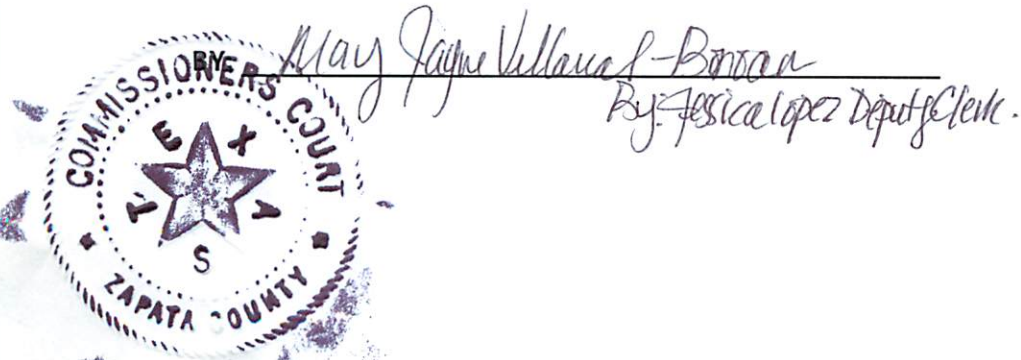 BY May Jayne Villarreal-Bonoan
By: Jessica Lopez Deputy Clerk.
COMMISSIONERS COURT
TEXAS
ZAPATA COUNTY